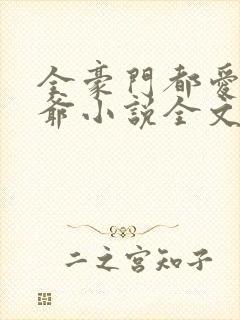 全豪門都愛
爺小說全文
二之宮知子